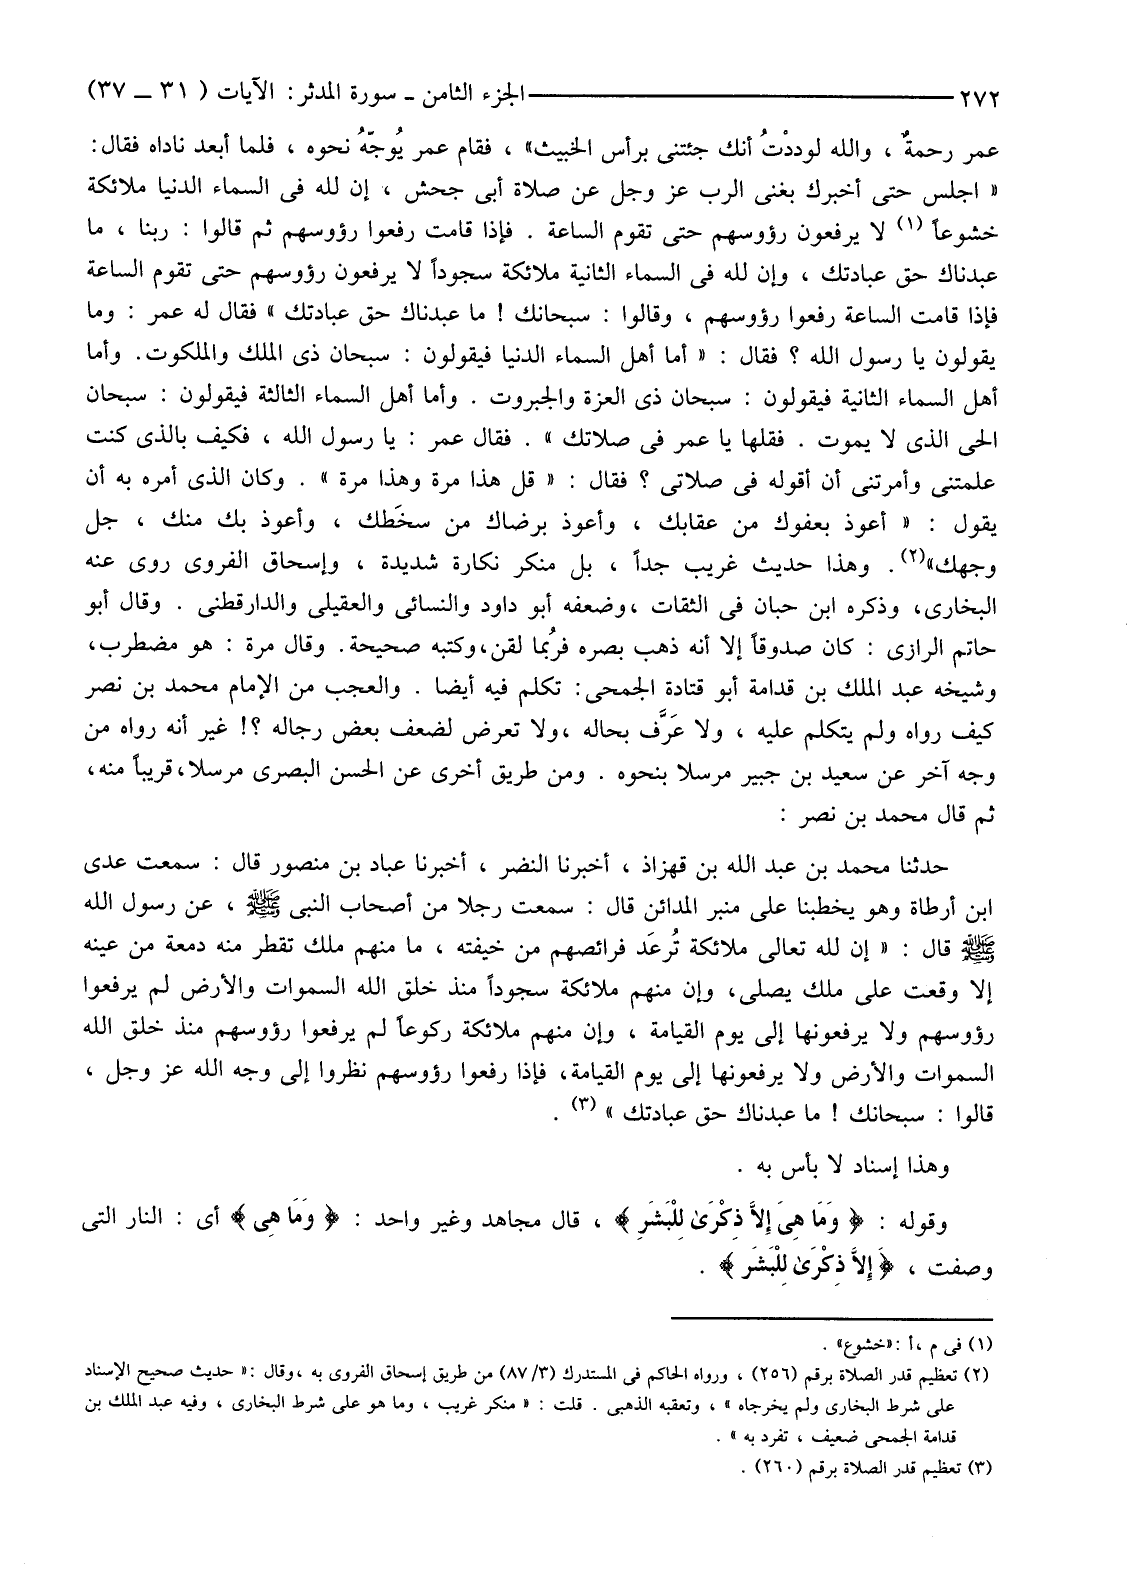 ٢٧٢ الجزء الثامن ـ سورة المدثر: الآيات ( ٣١ ــ ٣٧)
عمر رحمةٌ ، والله لوددْتُ أنك جئتنى برأس الخبيث» ، فقام عمر يُوجّهُ نحوه ، فلما أبعد ناداه فقال:
« اجلس حتى أخبرك بغنى الرب عز وجل عن صلاة أبى جحش ، إن لله فى السماء الدنيا ملائكة
خشوعاً (١) لا يرفعون رؤوسهم حتى تقوم الساعة . فإذا قامت رفعوا رؤوسهم ثم قالوا : ربنا ، ما
عبدناك حق عبادتك ، وإن لله فى السماء الثانية ملائكة سجوداً لا يرفعون رؤوسهم حتى تقوم الساعة
فإذا قامت الساعة رفعوا رؤوسهم ، وقالوا : سبحانك ! ما عبدناك حق عبادتك » فقال له عمر : وما
يقولون يا رسول الله ؟ فقال : « أما أهل السماء الدنيا فيقولون : سبحان ذى الملك والملكوت. وأما
أهل السماء الثانية فيقولون : سبحان ذى العزة والجبروت . وأما أهل السماء الثالثة فيقولون : سبحان
الحى الذى لا يموت . فقلها يا عمر فى صلاتك » . فقال عمر : يا رسول الله ، فكيف بالذى كنت
علمتنى وأمرتنى أن أقوله فى صلاتى ؟ فقال : « قل هذا مرة وهذا مرة » . وكان الذى أمره به أن
يقول : « أعوذ بعفوك من عقابك ، وأعوذ برضاك من سخَطك ، وأعوذ بك منك ، جل
وجهك»(٢). وهذا حديث غريب جداً ، بل منكر نكارة شديدة ، وإسحاق الفروى روى عنه
البخارى، وذكره ابن حبان فى الثقات ،وضعفه أبو داود والنسائى والعقيلى والدارقطنى . وقال أبو
حاتم الرازى : كان صدوقاً إلا أنه ذهب بصره فرُبما لقن،وكتبه صحيحة. وقال مرة : هو مضطرب،
وشيخه عبد الملك بن قدامة أبو قتادة الجمحى: تكلم فيه أيضا . والعجب من الإمام محمد بن نصر
كيف رواه ولم يتكلم عليه ، ولا عَرَّف بحاله ،ولا تعرض لضعف بعض رجاله ؟! غير أنه رواه من
وجه آخر عن سعيد بن جبير مرسلا بنحوه . ومن طريق أخرى عن الحسن البصرى مرسلا،قريباً منه،
ثم قال محمد بن نصر :
حدثنا محمد بن عبد الله بن قهزاذ ، أخبرنا النضر ، أخبرنا عباد بن منصور قال : سمعت عدى
ابن أرطاة وهو يخطبنا على منبر المدائن قال : سمعت رجلا من أصحاب النبى ﷺ ، عن رسول الله
ﷺ قال : « إن لله تعالى ملائكة تُرعَد فرائصهم من خيفته ، ما منهم ملك تقطر منه دمعة من عينه
إلا وقعت على ملك يصلى، وإن منهم ملائكة سجوداً منذ خلق الله السموات والأرض لم يرفعوا
رؤوسهم ولا يرفعونها إلى يوم القيامة ، وإن منهم ملائكة ركوعاً لم يرفعوا رؤوسهم منذ خلق الله
السموات والأرض ولا يرفعونها إلى يوم القيامة، فإذا رفعوا رؤوسهم نظروا إلى وجه الله عز وجل ،
قالوا : سبحانك ! ما عبدناك حق عبادتك » (٣) .
وهذا إسناد لا بأس به .
وقوله : ﴿ وَمَا هِىَ إِلاَّ ذِكْرَىٰ لِلْبَشَرِ ﴾ ، قال مجاهد وغير واحد : ﴿ وَمَا هِى ﴾ أى : النار التى
وصفت ، ﴿ إِلاَّ ذِكْرَىٰ لِلْبَشَرِ ﴾ .
(١) فى م ،أ :«خشوع» .
(٢) تعظيم قدر الصلاة برقم (٢٥٦) ، ورواه الحاكم فى المستدرك (٣/ ٨٧) من طريق إسحاق الفروى به ،وقال :« حديث صحيح الإسناد
على شرط البخارى ولم يخرجاه » ، وتعقبه الذهبى . قلت : « منكر غريب ، وما هو على شرط البخارى ، وفيه عبد الملك بن
قدامة الجمحى ضعيف ، تفرد به » .
(٣) تعظيم قدر الصلاة برقم (٢٦٠) .